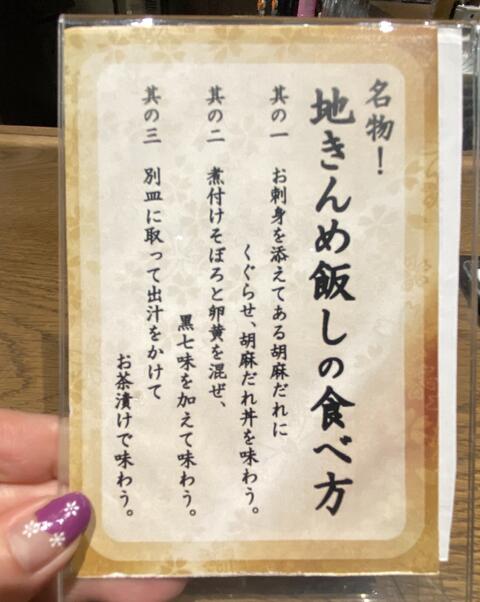 名物！
地きんめ飯しの食べ方
其の一 お刺身を添えてある胡麻だれに
くぐらせ、胡麻だれ丼を味わう。
其の二 煮付けそぼろと卵黄を混ぜ、
黒七味を加えて味わう。
其の三 別皿に取って出汁をかけて
お茶漬けで味わう。